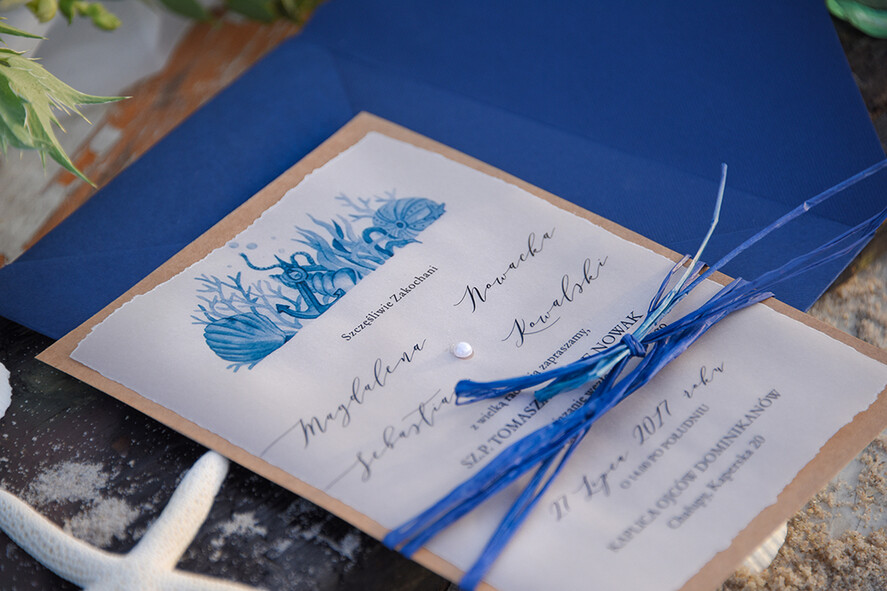 Szczęśliwie Zakochani
Magdalena Nowacka
Sebastian Kowalski
z wielką zapraszamy,
SZ.P. TOMASZ NOWAK
27 Lipca 2017 roku
O 14:00 PO POŁUDNIU
KAPLICA OJCÓW DOMINIKANÓW
Chałupy, Kaperska 20